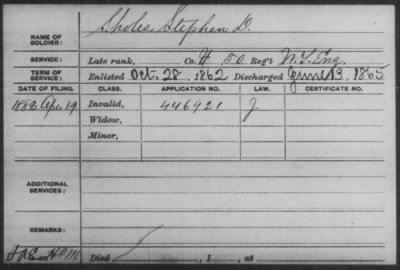 NAME OF SOLDIER: Sholes Stephen D.
SERVICE: Late rank, Co. H. 50 Reg't N.Y. Eng.
TERM OF SERVICE: Enlisted Oct. 28 1862 Discharged June 13, 1865
DATE OF FILING. CLASS. APPLICATION NO. LAW. CERTIFICATE NO.
1882 Apr. 19 Invalid, 446921 J.
Widow,
Minor,
ADDITIONAL SERVICES:
REMARKS:
Died , 1 , at